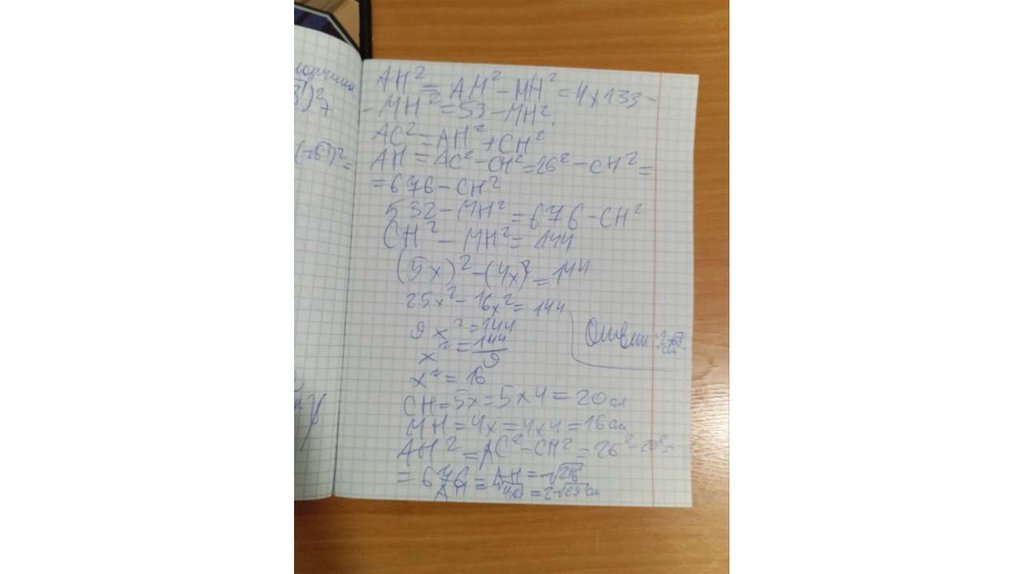 (-63)²=
AH² = AM² - MH² = 4×133-
- MH² = 53 - MH²,
AC² = AH² + CH²
AH = AC² - CH² = 26² - CH² =
= 676 - CH²
532 - MH² = 676 - CH²
CH² - MH² = 144
(5x)² - (4x)² = 144
25x² - 16x² = 144
9x² = 144
x² = 144/9
x² = 16
Ответ:
CH = 5x = 5×4 = 20 см
MH = 4x = 4×4 = 16 см
AH² = AC² - CH² = 26² - 20² =
= 676 =
AH